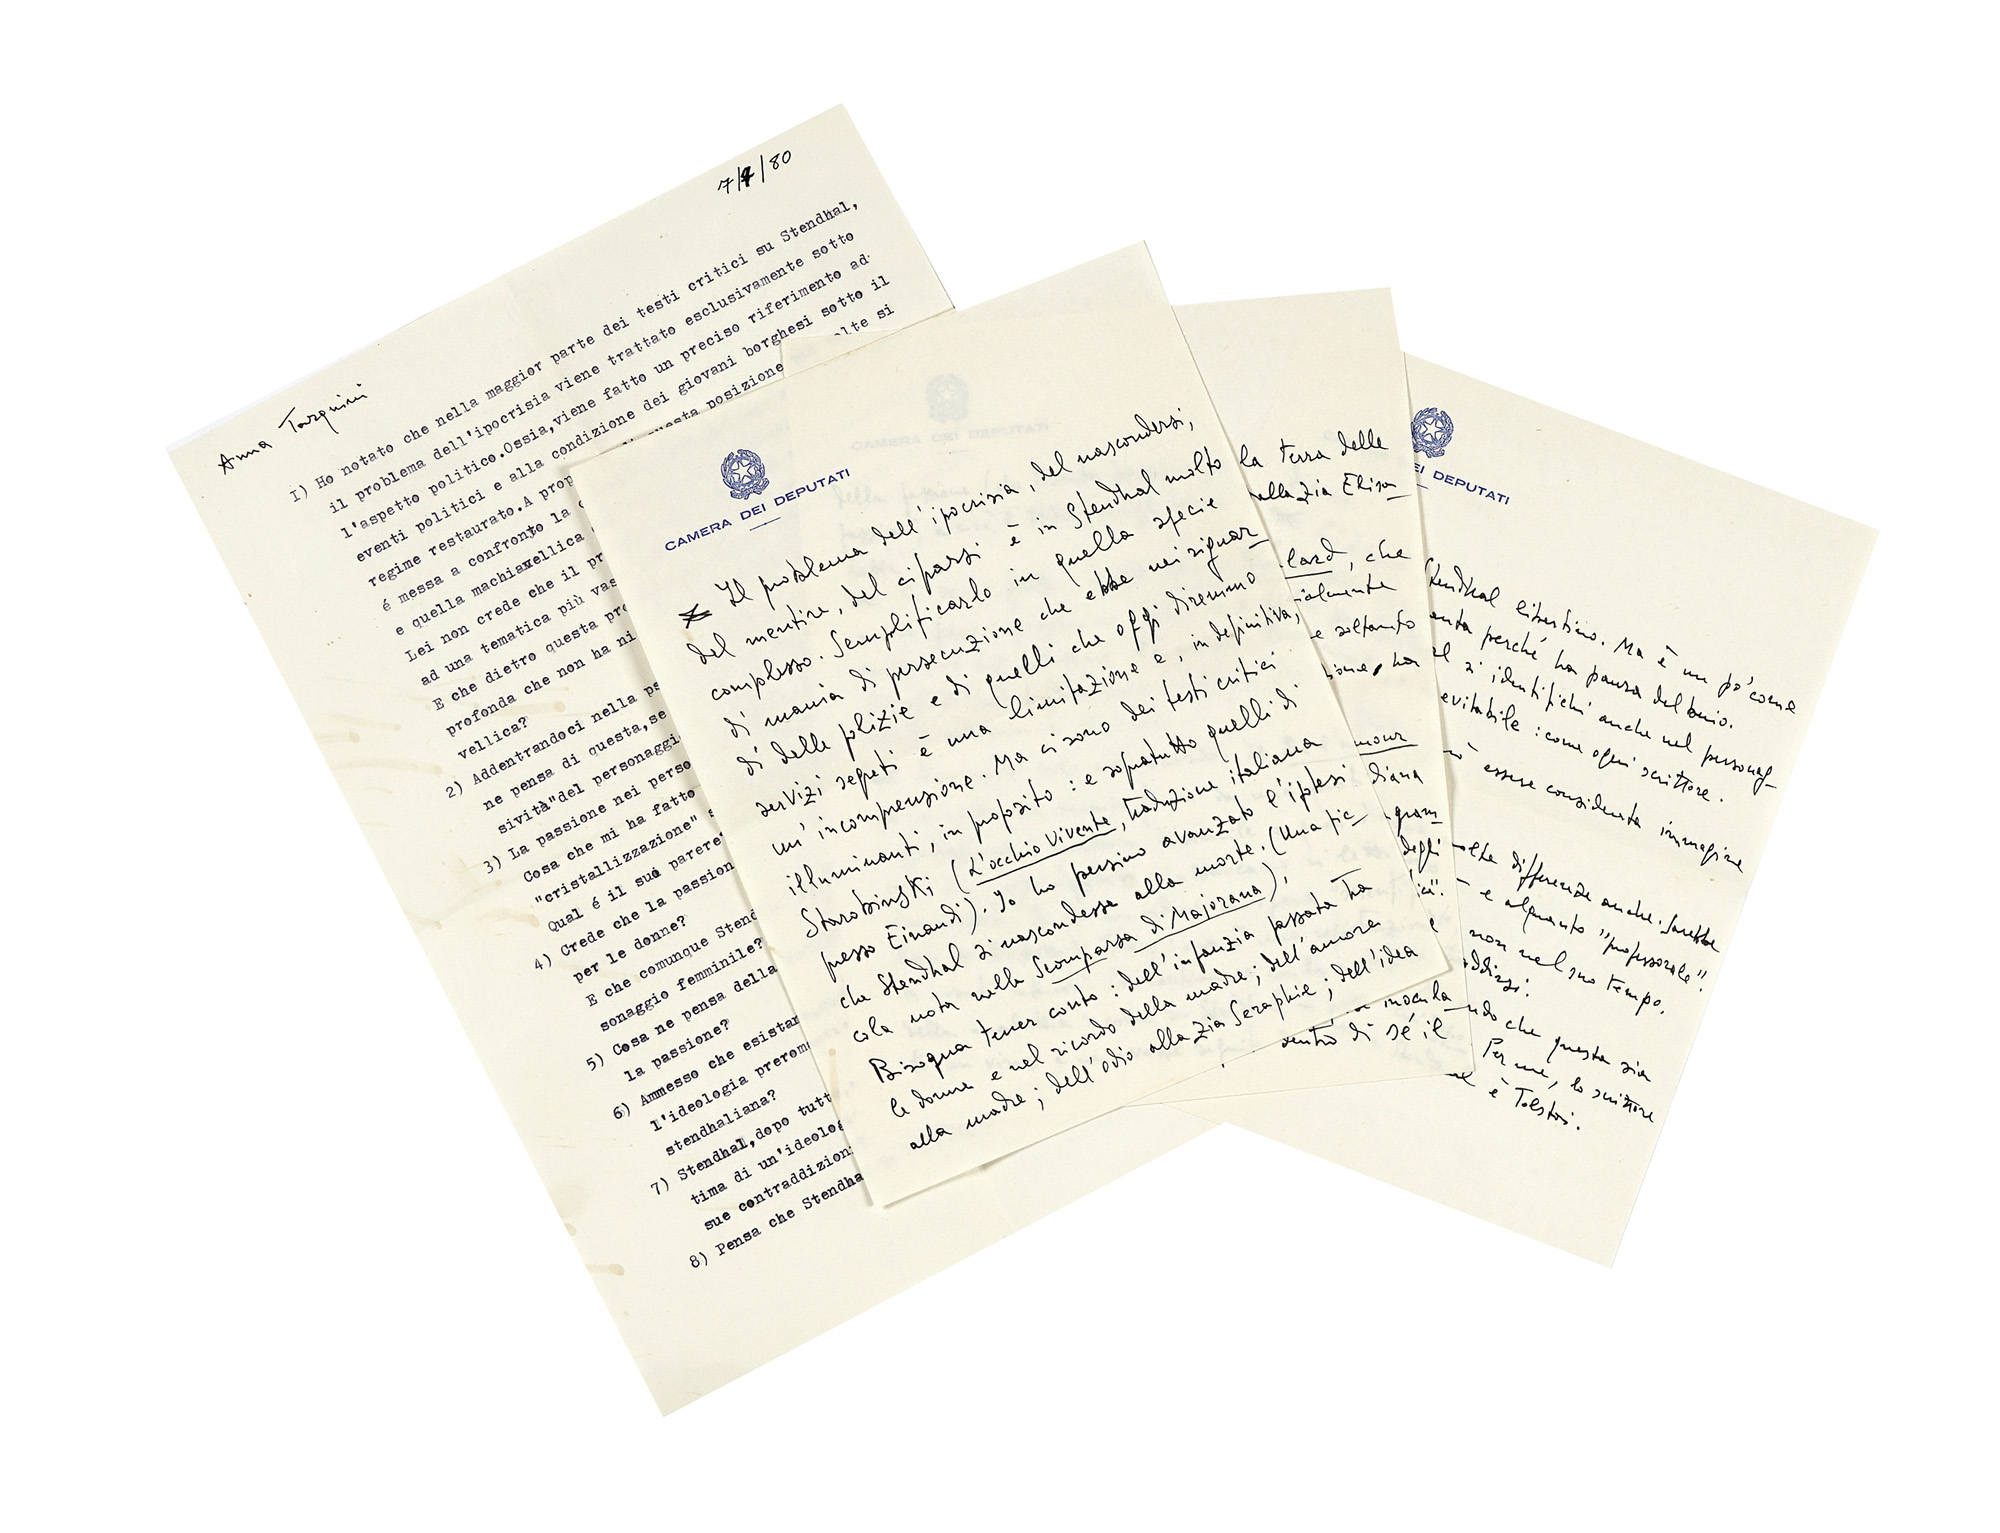 7/4/80
Anna Tarquini
1) Ho notato che nella maggior parte dei testi critici su Stendhal,
il problema dell'ipocrisia viene trattato esclusivamente sotto
l'aspetto politico.Ossia,viene fatto un preciso riferimento ad
eventi politici e alla condizione dei giovani borghesi sotto il
regime restaurato.A prop questa posizione olte si
é messa a confronto la
e quella machiavellica
Lei non crede che il pr
ad una tematica più vas
E che dietro questa pr
profonda che non ha ni
vellica?
2) Addentrandoci nella ps
ne pensa di questa,se
sività"del personaggi
3) La passione nei perso
Cosa che mi ha fatto
"cristallizzazione"
Qual é il suo parere
4) Crede che la passion
per le donne?
E che comunque Stend
sonaggio femminile?
5) Cosa ne pensa della
la passione?
6) Ammesso che esistan
l'ideologia prerom
stendhaliana?
7) Stendhal,dopo tutt
tima di un'ideolog
sue contraddizion
8) Pensa che Stendha
CAMERA DEI DEPUTATI
Il problema dell'ipocrisia, del nascondersi,
del mentire, del ciparsi è in Stendhal molto
complesso. Semplificarlo in quella specie
di mania di persecuzione che ebbe nei riguar
di delle polizie e di quelli che oggi diremmo
servizi segreti è una limitazione e, in definitiva,
un'incomprensione. Ma ci sono dei testi critici
illuminanti, in proposito: e sopratutto quelli di
Starobinski (L'occhio vivente, traduzione italiana
presso Einaudi). Io ho persino avanzato l'ipotesi
che Stendhal si nascondesse alla morte. (Una pic
cola nota nella Scomparsa di Majorana).
Bisogna tener conto: dell'infanzia passata tra
le donne e nel ricordo della madre; dell'amore
alla madre; dell'odio alla zia Seraphie; dell'idea
CAMERA DEI DEPUTATI
la terra delle
alla zia Elisa
lard, che
ialmente
e soltanto
ione, ha
mour
diana
gram
degli
ici".
e
inocula
dentro di sé il
EI DEPUTATI
Stendhal libertino. Ma è un po' come
anta perché ha paura del buio.
al si identifichi anche nel personag-
evitabile: come ogni scrittore.
essere considerata immagine
molte differenze anche. Sarebbe
e alquanto "professorale".
non nel suo tempo.
ddirsi.
ndo che questa sia
Per me, lo scrittore
è Tolstoi.